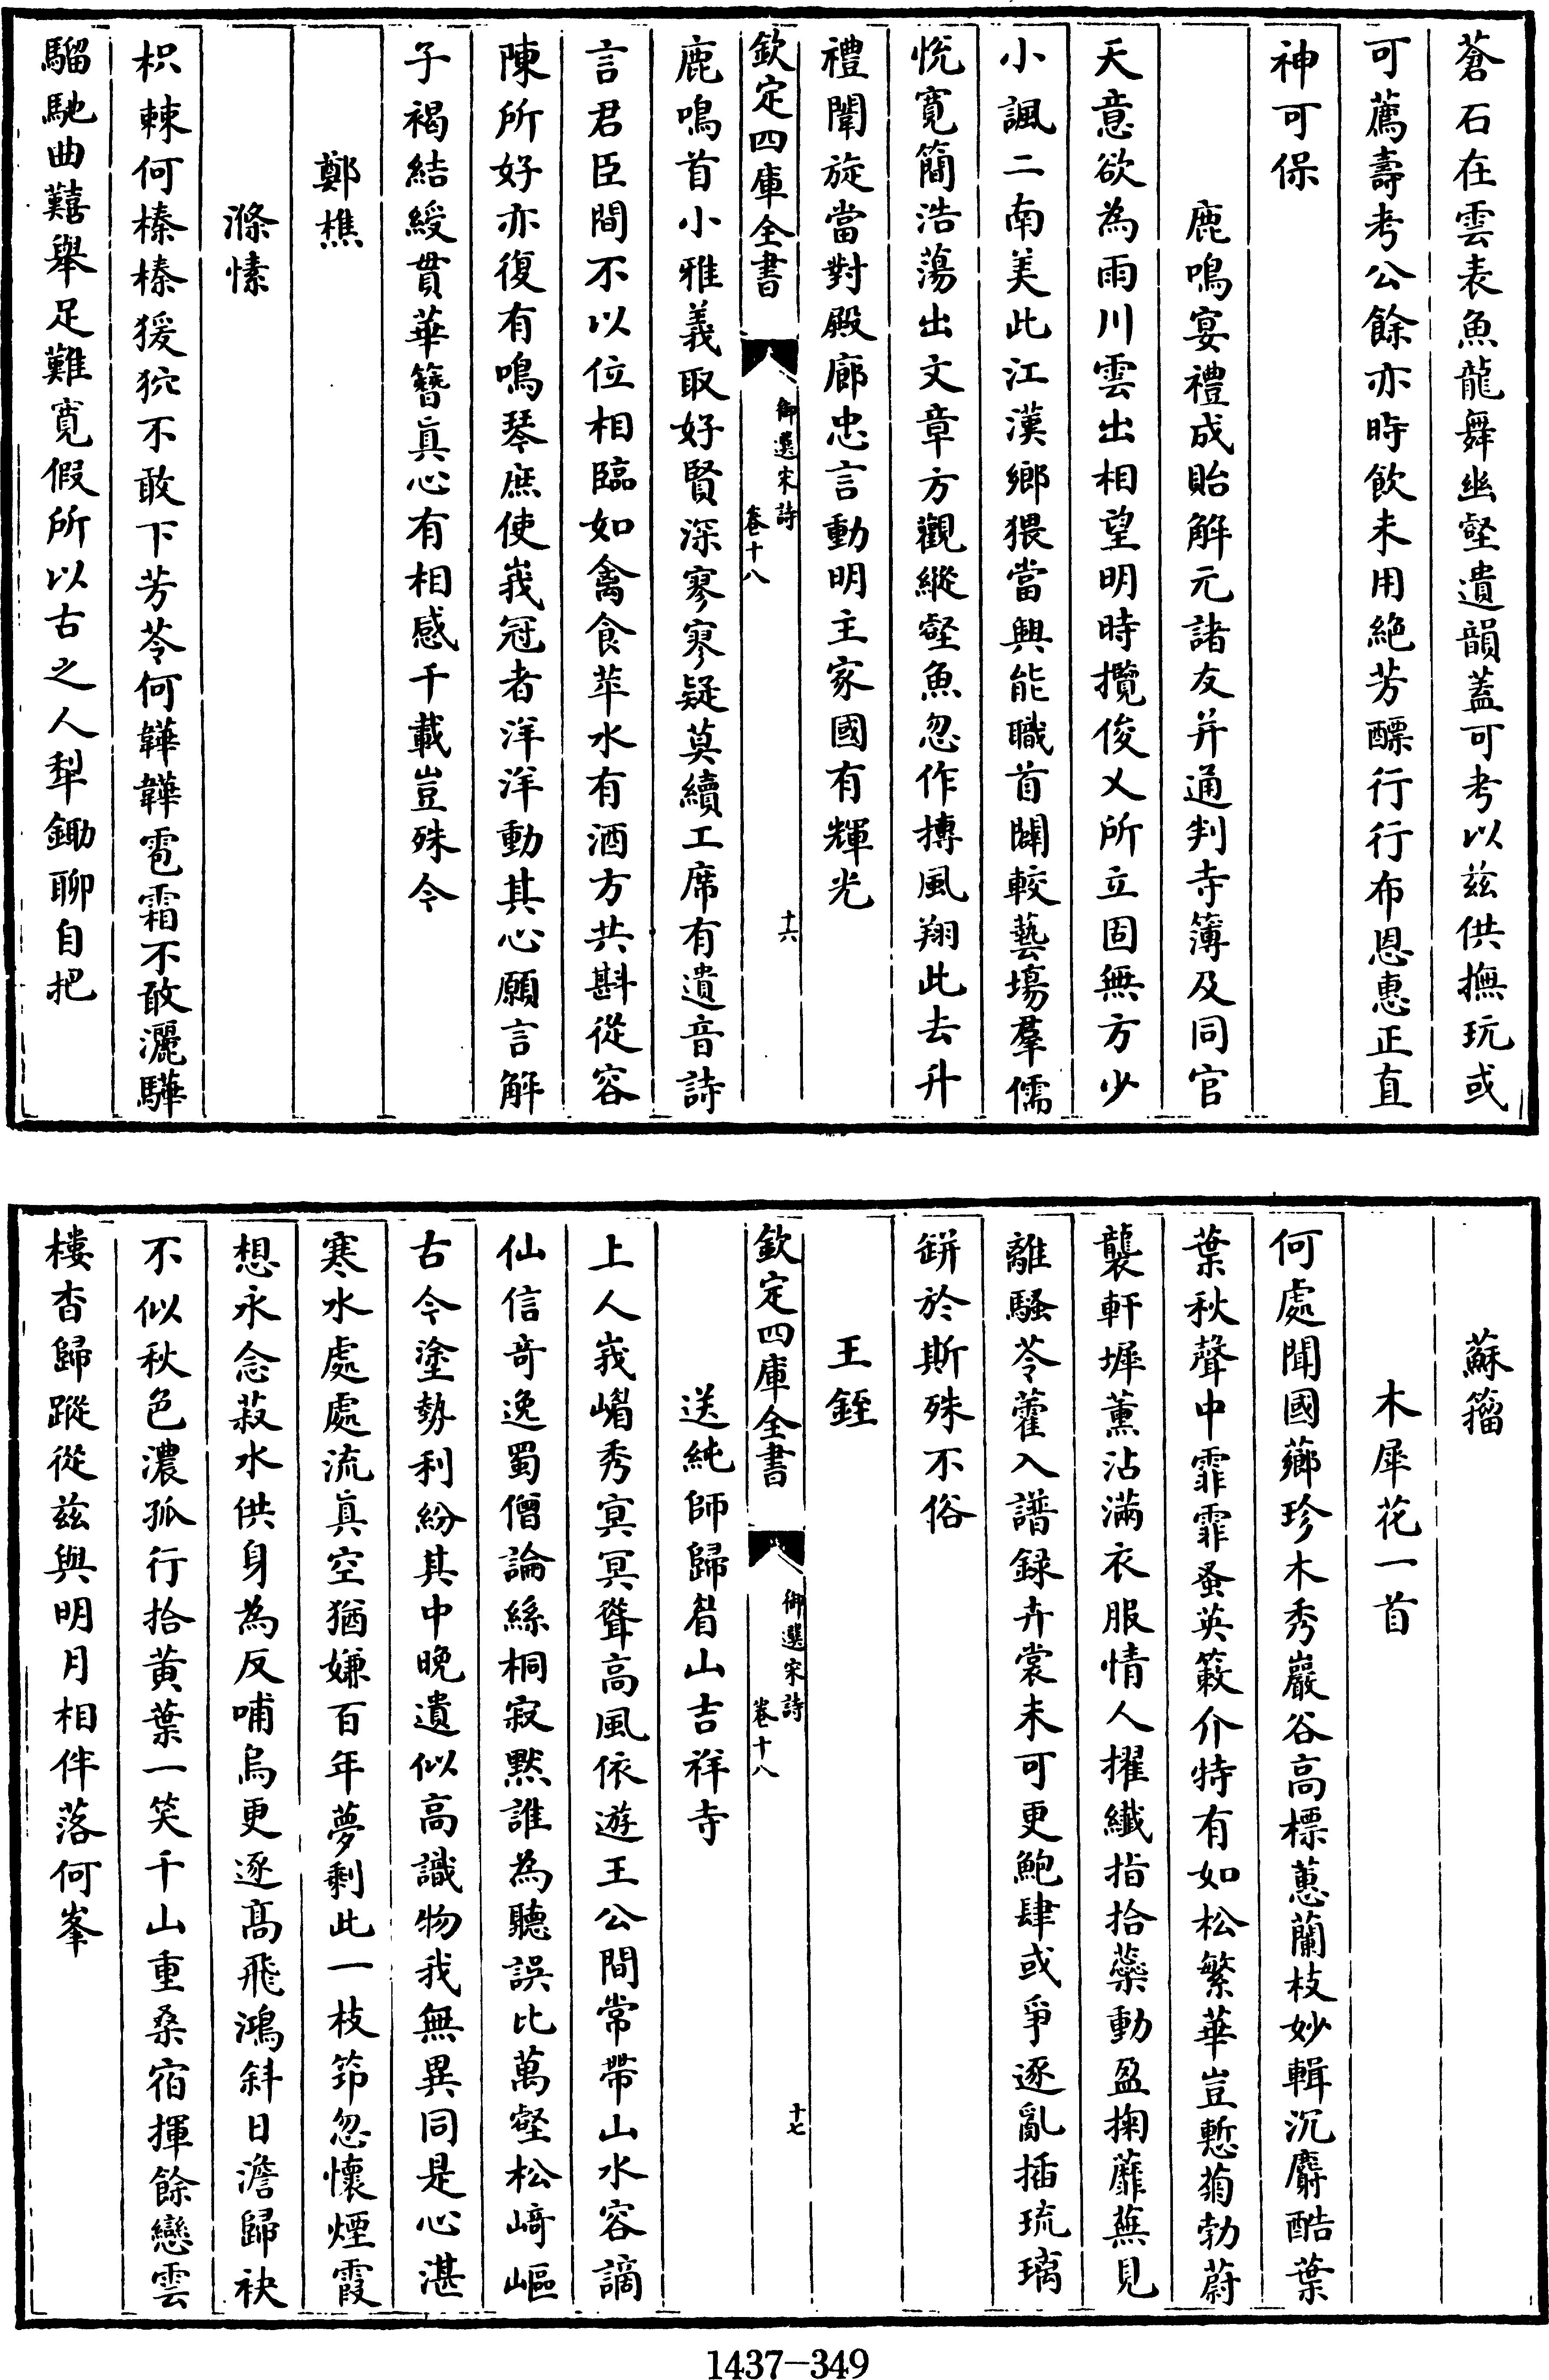 蒼石在雲表魚龍舞幽壑遺韻蓋可考以兹供撫玩或
可薦壽考公餘亦時飲未用絶芳醥行行布恩惠正直
神可保
鹿鳴宴禮成貽解元諸友并通判寺簿及同官
天意欲為雨川雲出相望明時攬俊乂所立固無方少
小諷二南美此江漢鄉猥當興能職首闢較藝場羣儒
悦寛簡浩蕩出文章方觀縱壑魚忽作摶風翔此去升
禮闈旋當對殿廊忠言動明主家國有輝光
欽定四庫全書
御選宋詩
卷十八
十六
鹿鳴首小雅義取好賢深寥寥疑莫續工席有遺音詩
言君臣間不以位相臨如禽食苹水有酒方共斟從容
陳所好亦復有鳴琴庶使峩冠者洋洋動其心願言解
子褐結綬貫華簪真心有相感千載豈殊今
鄭樵
滌愫
枳棘何榛榛猨狖不敢下芳苓何韡韡雹霜不敢灑驊
騮馳曲囏舉足難寛假所以古之人犁鋤聊自把
蘇籀
木犀花一首
何處聞國薌珍木秀巖谷高標蕙蘭枝妙輯沉麝酷葉
葉秋聲中霏霏蚤英簌介特有如松繁華豈慙菊勃蔚
襲軒墀薰沾滿衣服情人擢纖指拾蘂動盈掬蘼蕪見
離騷苓藿入譜録卉裳未可更鮑肆或爭逐亂插琉璃
缾於斯殊不俗
王銍
欽定四庫全書
御選宋詩
卷十八
十七
送純師歸眉山吉祥寺
上人峩嵋秀寘冥聳高風依遊王公間常帶山水容謫
仙信奇逸蜀僧論絲桐寂黙誰為聽誤比萬壑松﨑嶇
古今塗勢利紛其中晚遺似高識物我無異同是心湛
寒水處處流真空猶嫌百年夢剩此一枝筇忽懷煙霞
想永念菽水供身為反哺烏更逐髙飛鴻斜日澹歸袂
不似秋色濃孤行拾黄葉一笑千山重桑宿揮餘戀雲
棲杳歸蹤從兹與明月相伴落何峯
1437—349